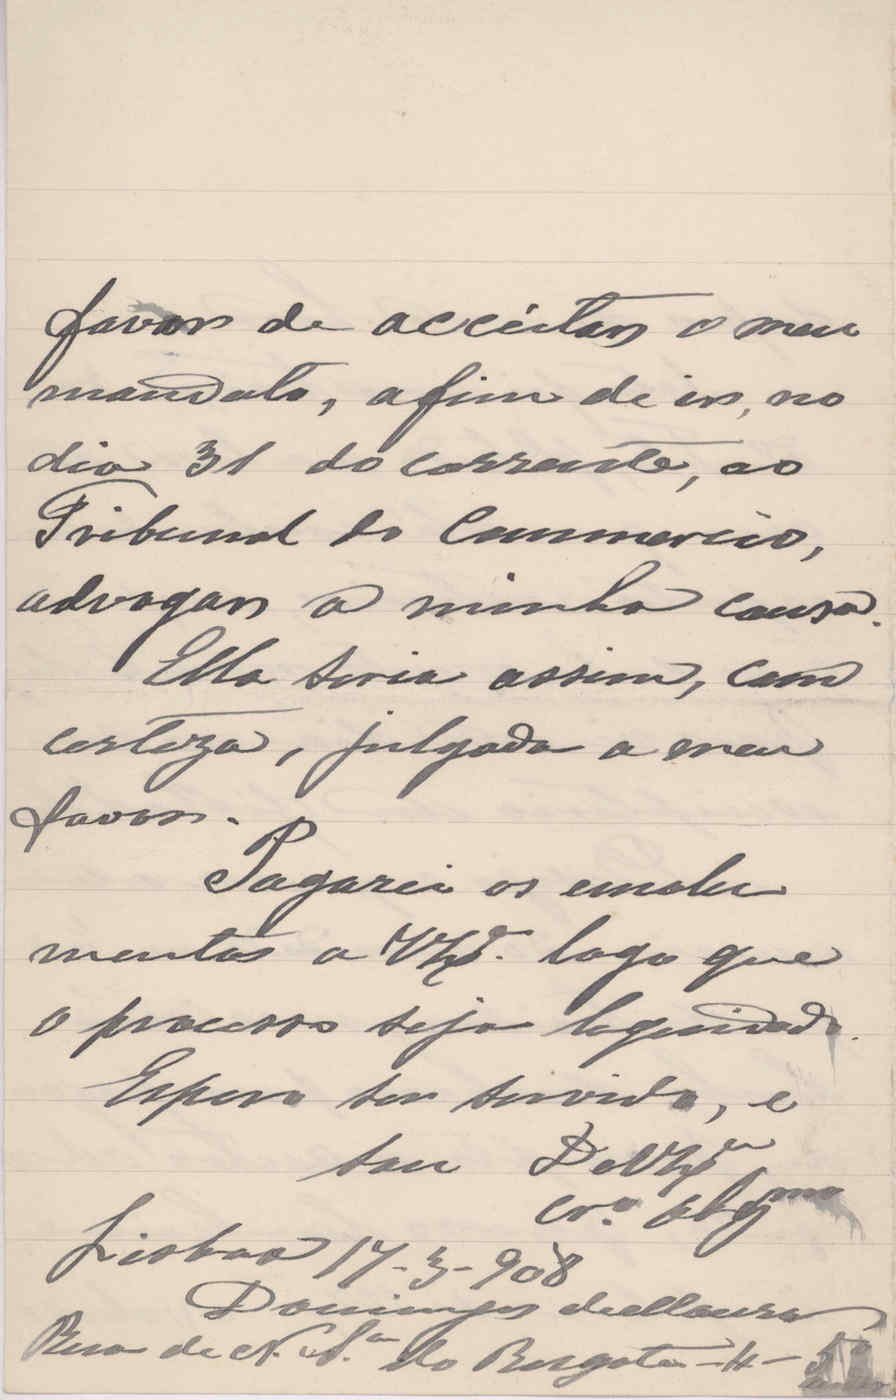 favor de acceitar o meu
mandato, afim de ir, no
dia 31 do corrente, ao
Tribunal do Commercio,
advogar a minha causa.
Ella seria assim, com
certeza, julgada a meu
favor.
Pagarei os emolu
mentos a V. Exª. logo que
o processo seja liquidado.
Espero ser servido, e
sou De V. Exª
crº. obgmo
Lisboa 17-3-908
Domingos de Moura
Rua de N. Sª do Resgate -4-